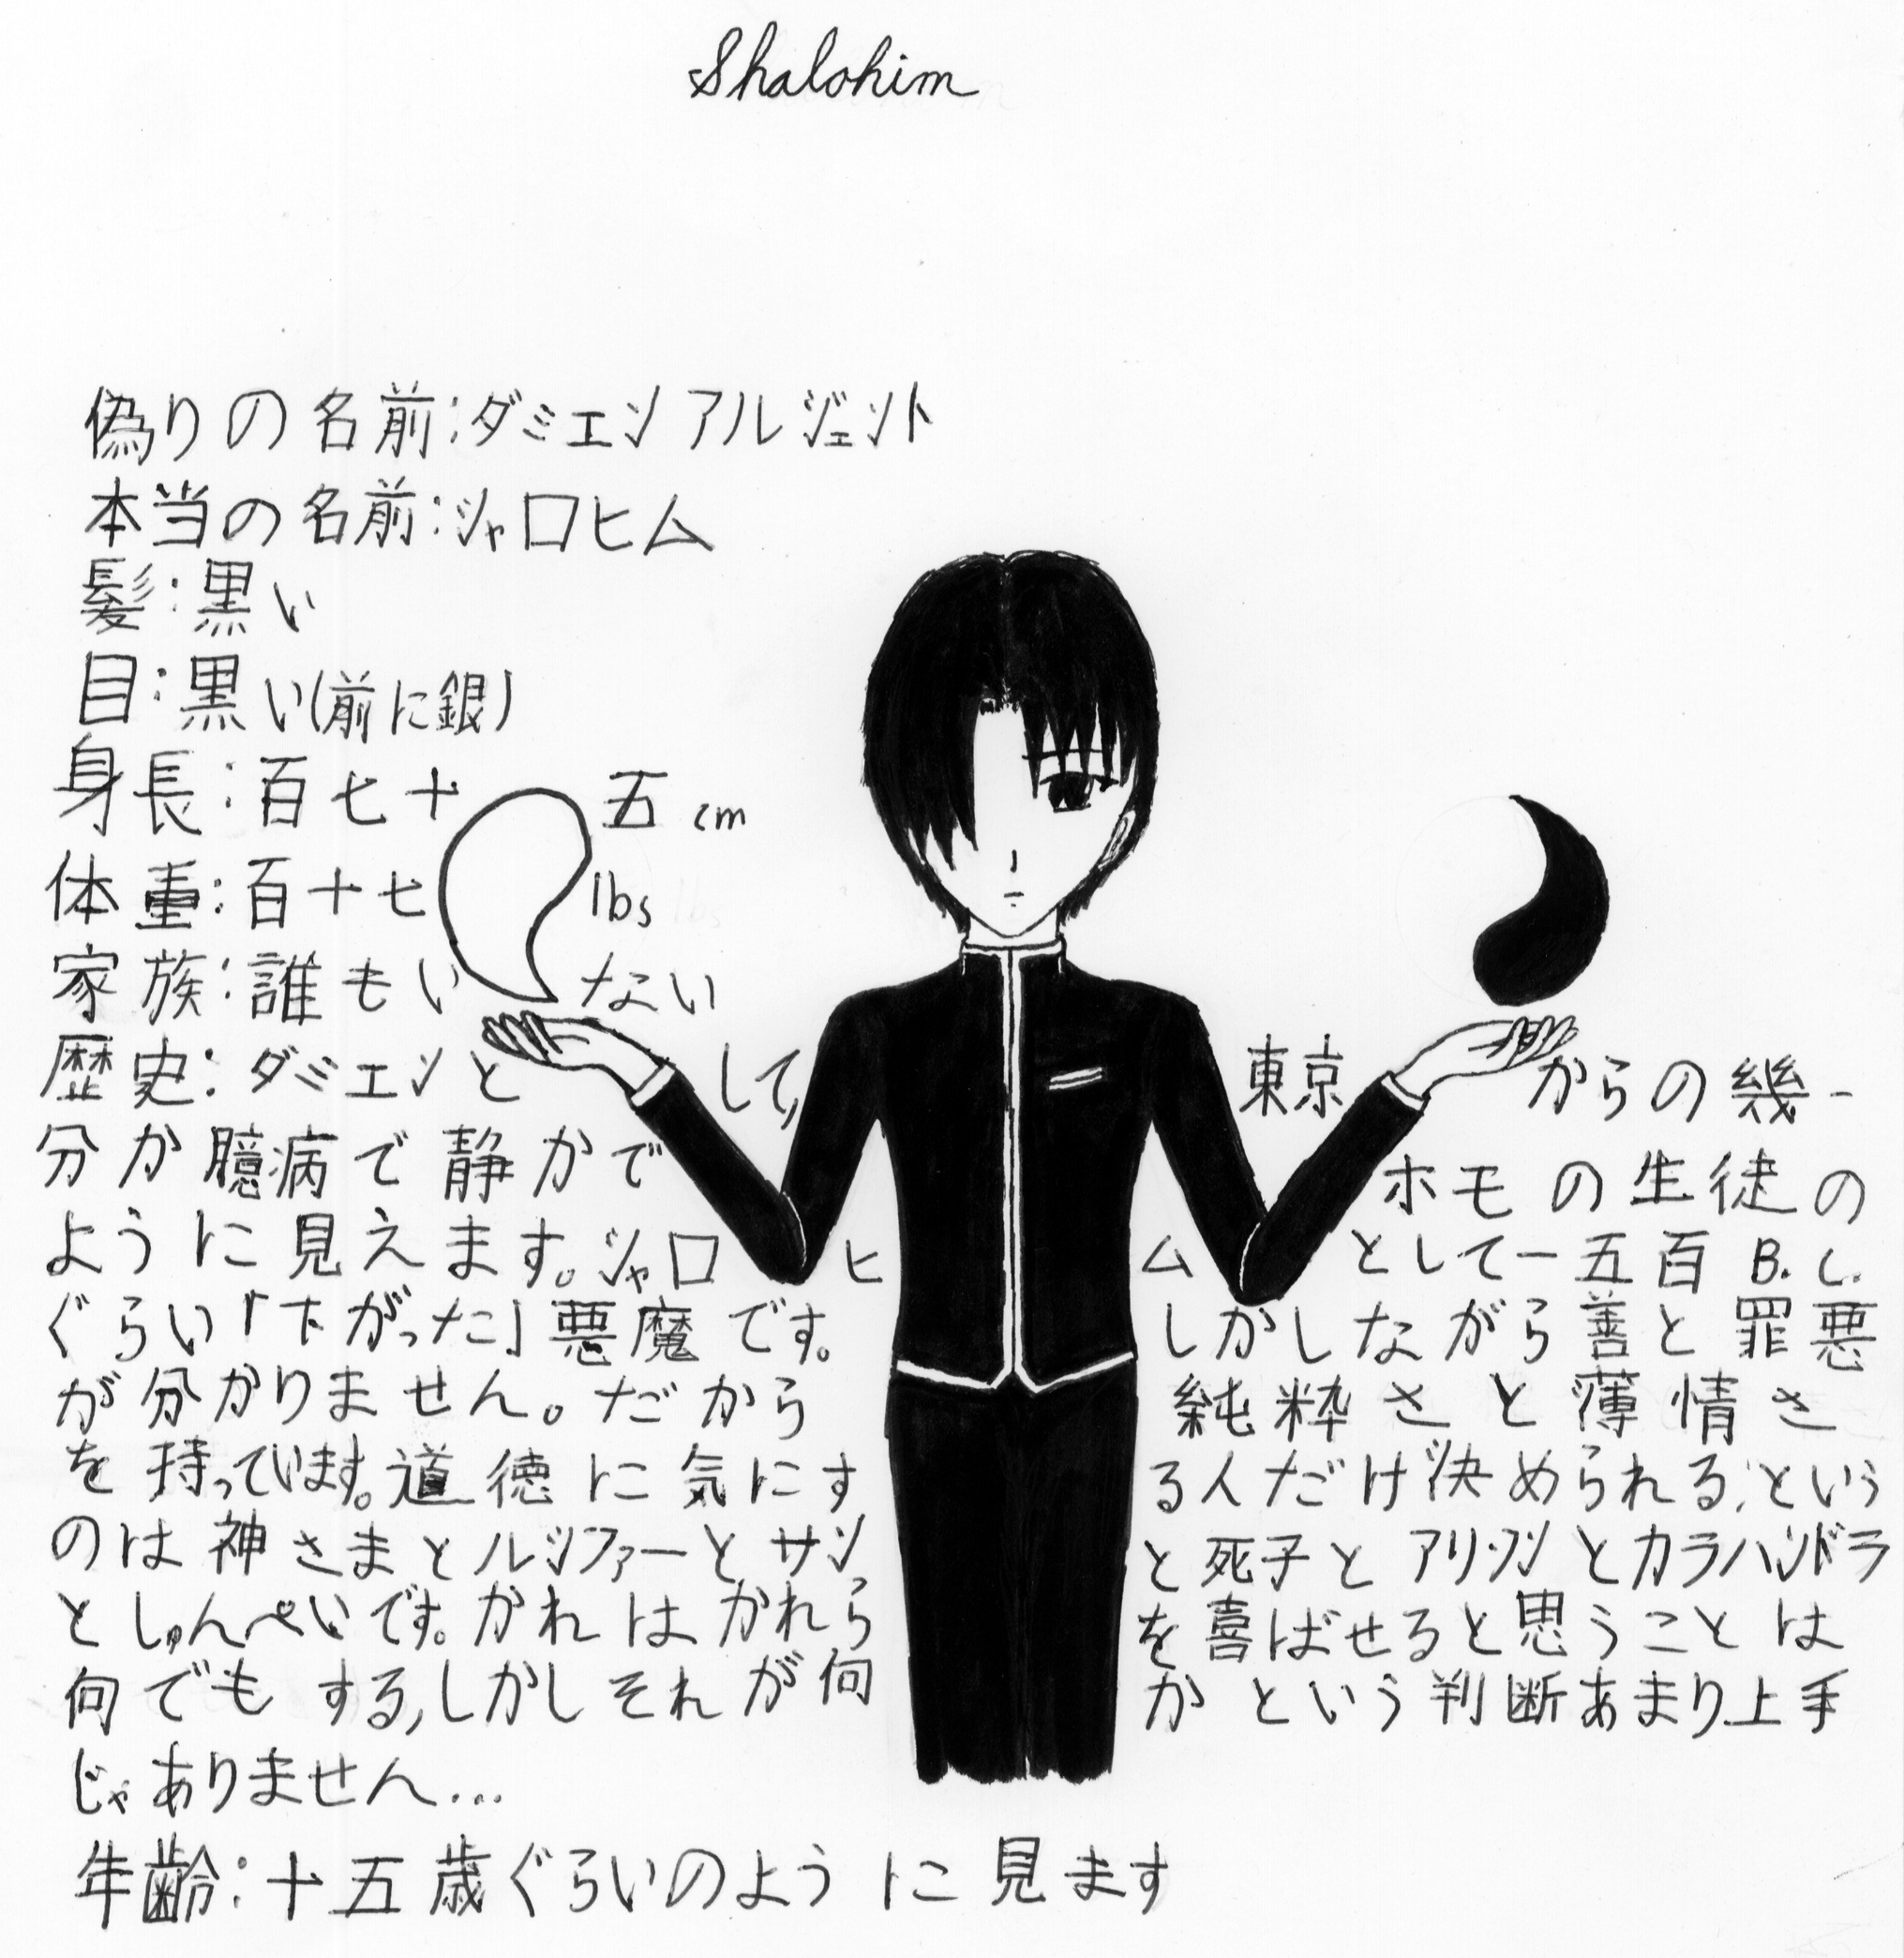 Shalohim
偽りの名前:ダミエン アルジェント
本当の名前:シャロヒム
髪:黒い
目:黒い(前に銀)
身長:百七十五cm
体重:百十七lbs
家族:誰もいない
歴史:ダミエンとして,東京からの幾-
分か臆病で静かでホモの生徒の
ように見えます。シャロヒムとして一五百 B.C.
ぐらい「下がった」悪魔です。しかしながら善と罪悪
が分かりません。だから純粋さと薄情さ
を持っています。道徳に気にする人だけ決められる;という
のは神さまとルシファーとサンと死子とアリソンとカラハンドラ
としゅんぺいです。かれはかれらを喜ばせると思うことは
何でもする,しかしそれが何かという判断あまり上手
じゃありません...
年齢:十五歳ぐらいのように見ます